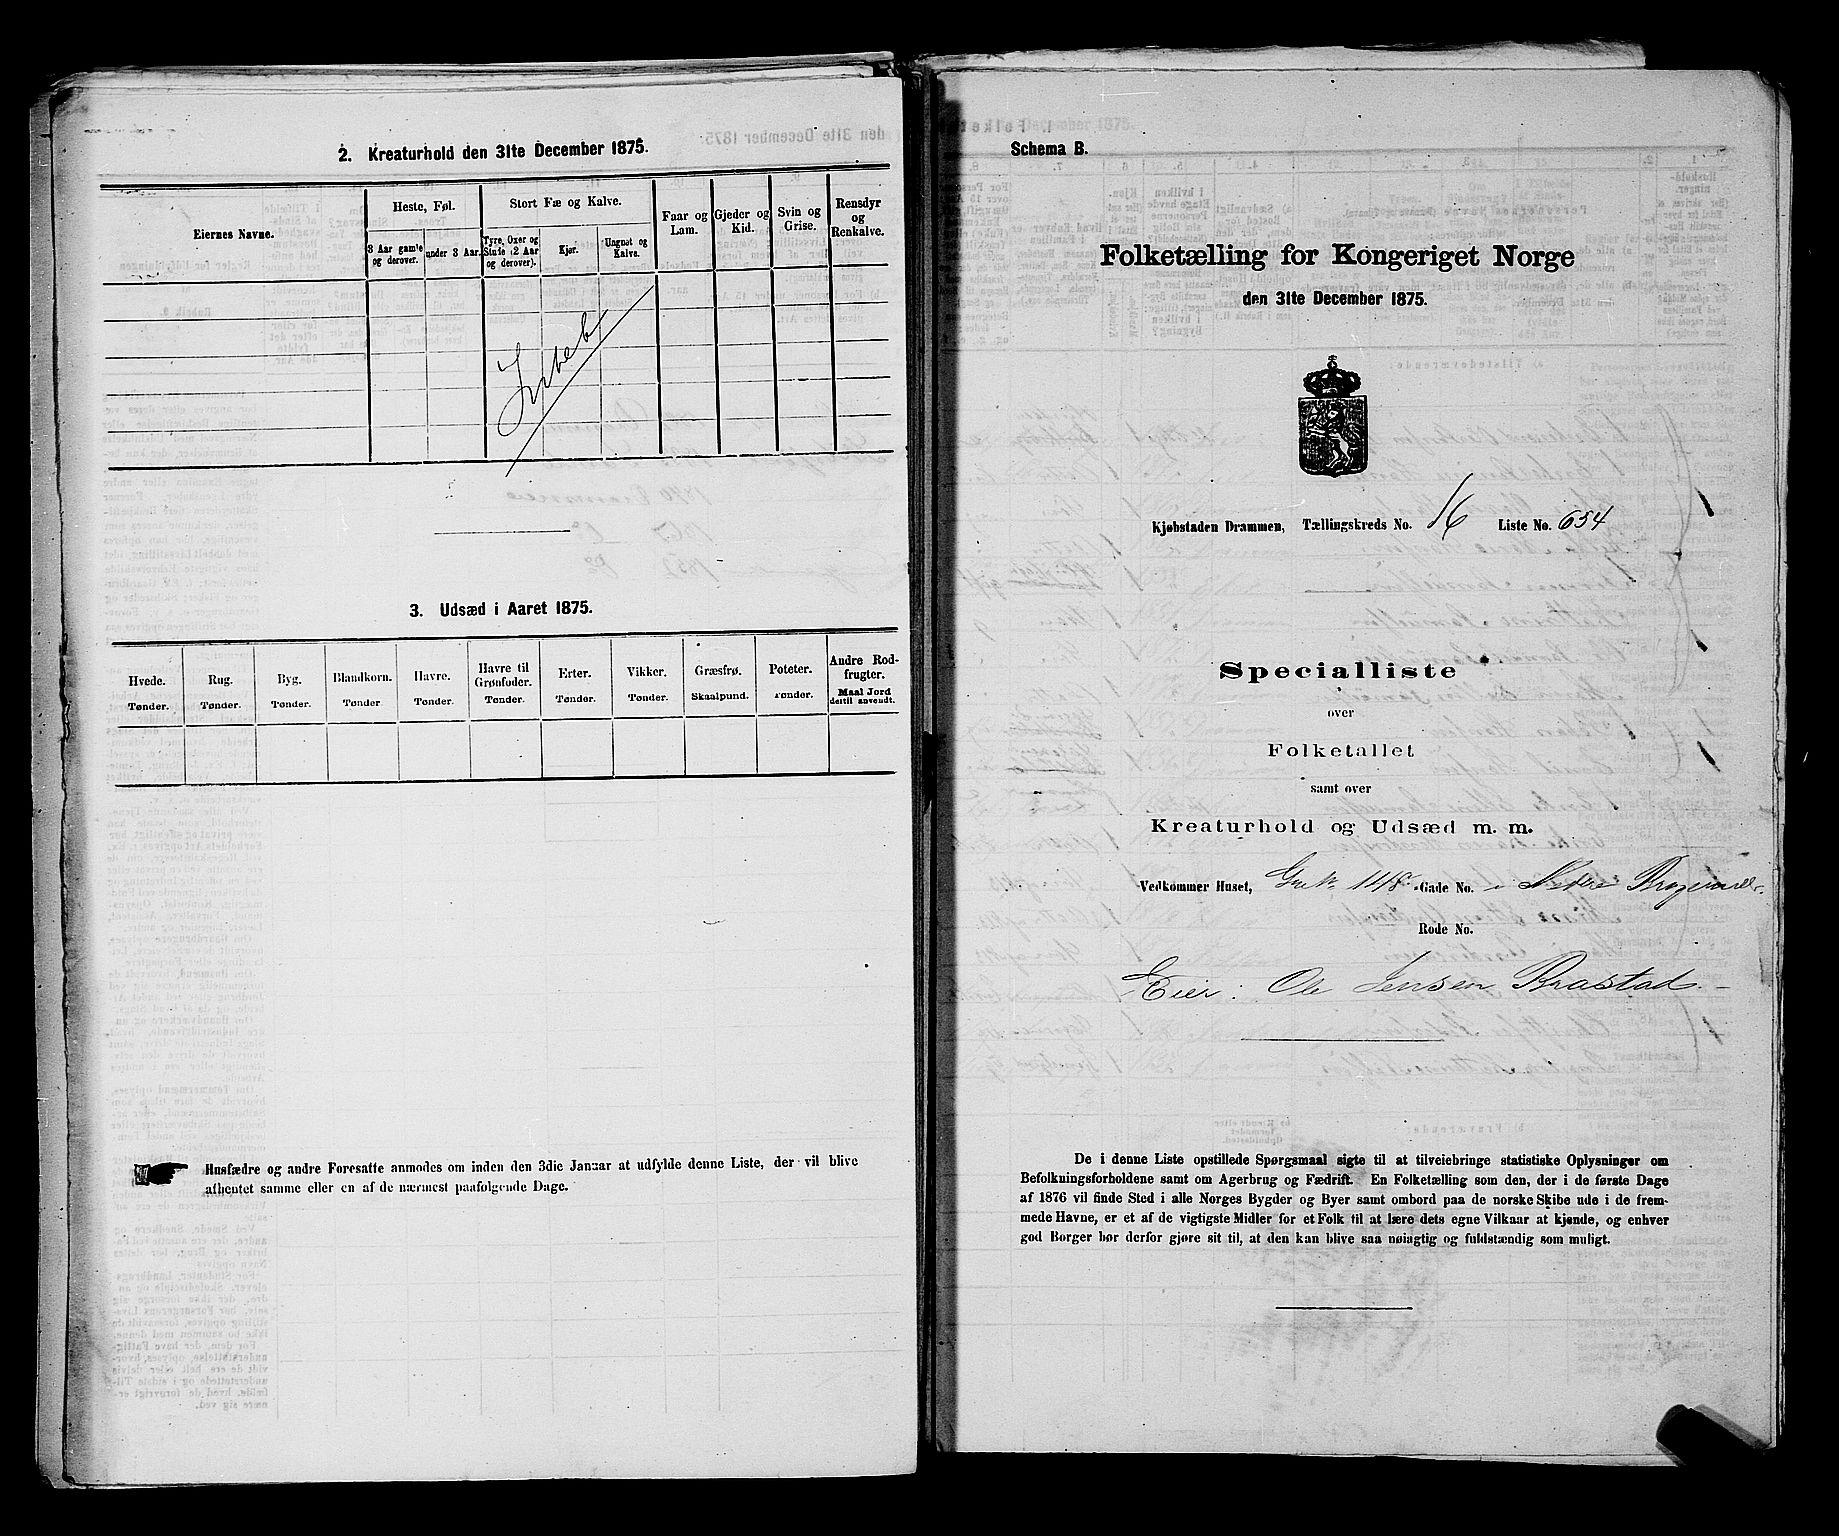 2. Kreaturhold den 31te December 1875.
Eiernes Navne.
Heste, Føl.
Stort Fæ og Kalve.
Faar og Lam.
Gjeder og Kid.
Svin og Grise.
Rensdyr og Renkalve.
3 Aar gamle og derover.
under 3 Aar.
Tyre, Oxer og Stute (2 Aar og derover).
Kjør.
Ungnøt og Kalve.
3. Udsæd i Aaret 1875.
Hvede. Tønder.
Rug. Tønder.
Byg. Tønder.
Blandkorn. Tønder
Havre. Tønder.
Havre til Grønfoder. Tønder.
Erter. Tønder.
Vikker. Tønder.
Græsfrø. Skaalpund.
Poteter. Tønder.
Andre Rodfrugter. Maal Jord dertil anvendt.
Husfædre og andre Foresatte anmodes om inden den 3die Januar at udfylde denne Liste, der vil blive
afhentet samme eller en af de nærmest paafølgende Dage.
Schema B.
Folketælling for Kongeriget Norge
den 31te December 1875.
Kjøbstaden Drammen, Tællingskreds No. 16 Liste No. 654
Specialliste
over
Folketallet
samt over
Kreaturhold og Udsæd m. m.
Vedkommer Huset, 148 Gade No. i Nedre
Rode No.
Eier: Ole Jensen Brastad.
De i denne Liste opstillede Spørgsmaal sigte til at tilveiebringe statistiske Oplysninger om
Befolkningsforholdene samt om Agerbrug og Fædrift. En Folketælling som den, der i de første Dage
af 1876 vil finde Sted i alle Norges Bygder og Byer samt ombord paa de norske Skibe ude i de frem-
mede Havne, er et af de vigtigste Midler for et Folk til at lære dets egne Vilkaar at kjende, og enhver
god Borger bør derfor gjøre sit til, at den kan blive saa nøiagtig og fuldstændig som muligt.